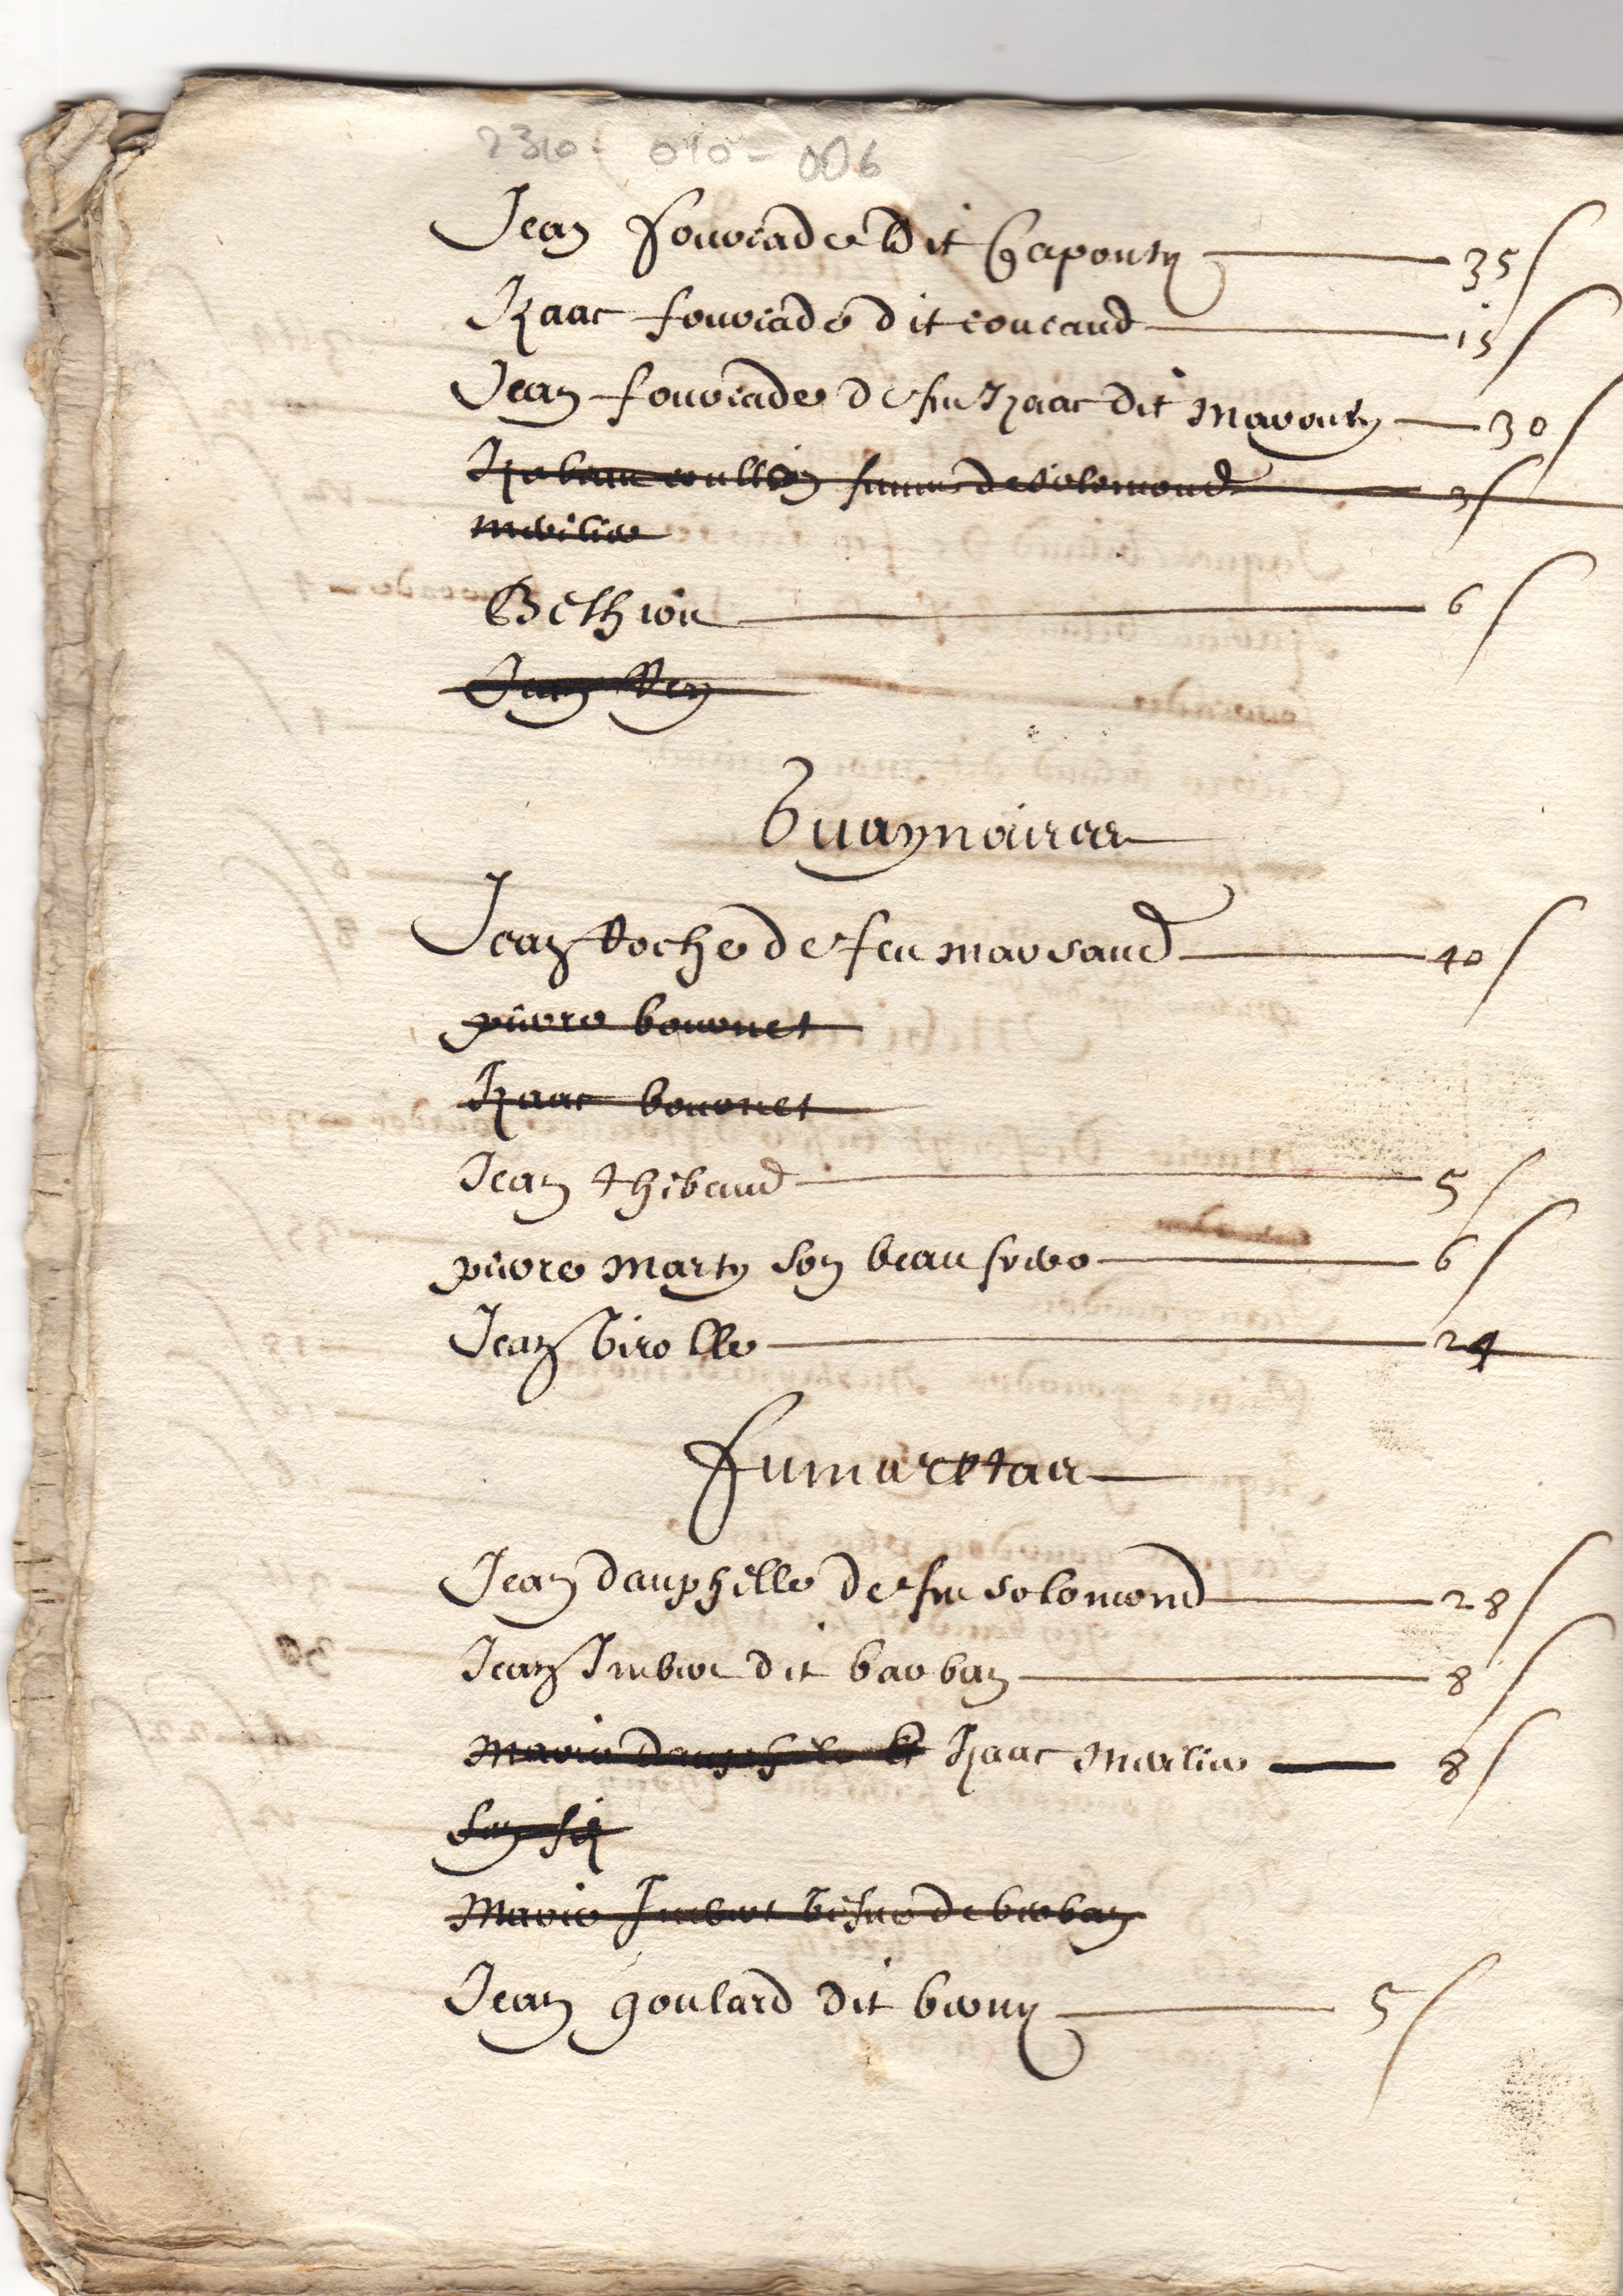 2310 - 010 - 006
Jean fourcade dit Capouty 35
Izaac fourcade dit couraud 15
Jean fourcade de feu Izaac dit Marouty 30
femme de solomond 3
merilie
Bethion 6
Jean Rey
Guaynaires
Jean Roche de feu marsaud 40
pierre bouonet
Izaac bouonet
Jean thibaud 5
pierre Marty son beau frere 6
Jean Virolle 24
fumarettas
Jean dauphille de feu solomond 28
Jean Imbert dit barban 8
Marie dauphile et Izaac Merlie 8
son fiz
Marie Imbert vefve de barban
Jean goulard dit brouny 5